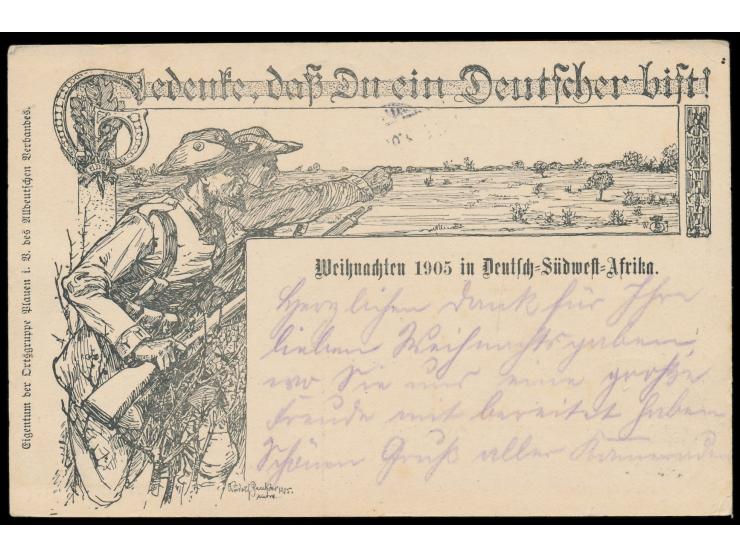 Gedenke, daß Du ein Deutscher bist!
Eigentum der Ortsgruppe Plauen i. V. des Alldeutschen Verbandes.
Weihnachten 1905 in Deutsch=Südwest=Afrika.
Herzlichen Dank für Ihre
lieben Weihnachtsgaben,
wo Sie uns eine große
Freude mit bereitet haben
Schönen Gruß aller Kameraden
Rudolf 1905.